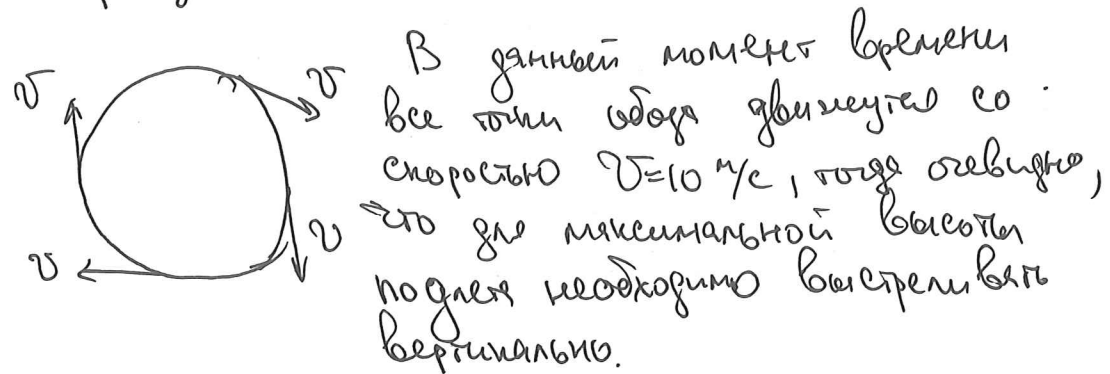 В данный момент времени
v v
все точки обода движутся со
скоростью v=10 м/с, тогда очевидно,
что для максимальной высоты
v v
подлета необходимо выстреливать
вертикально.